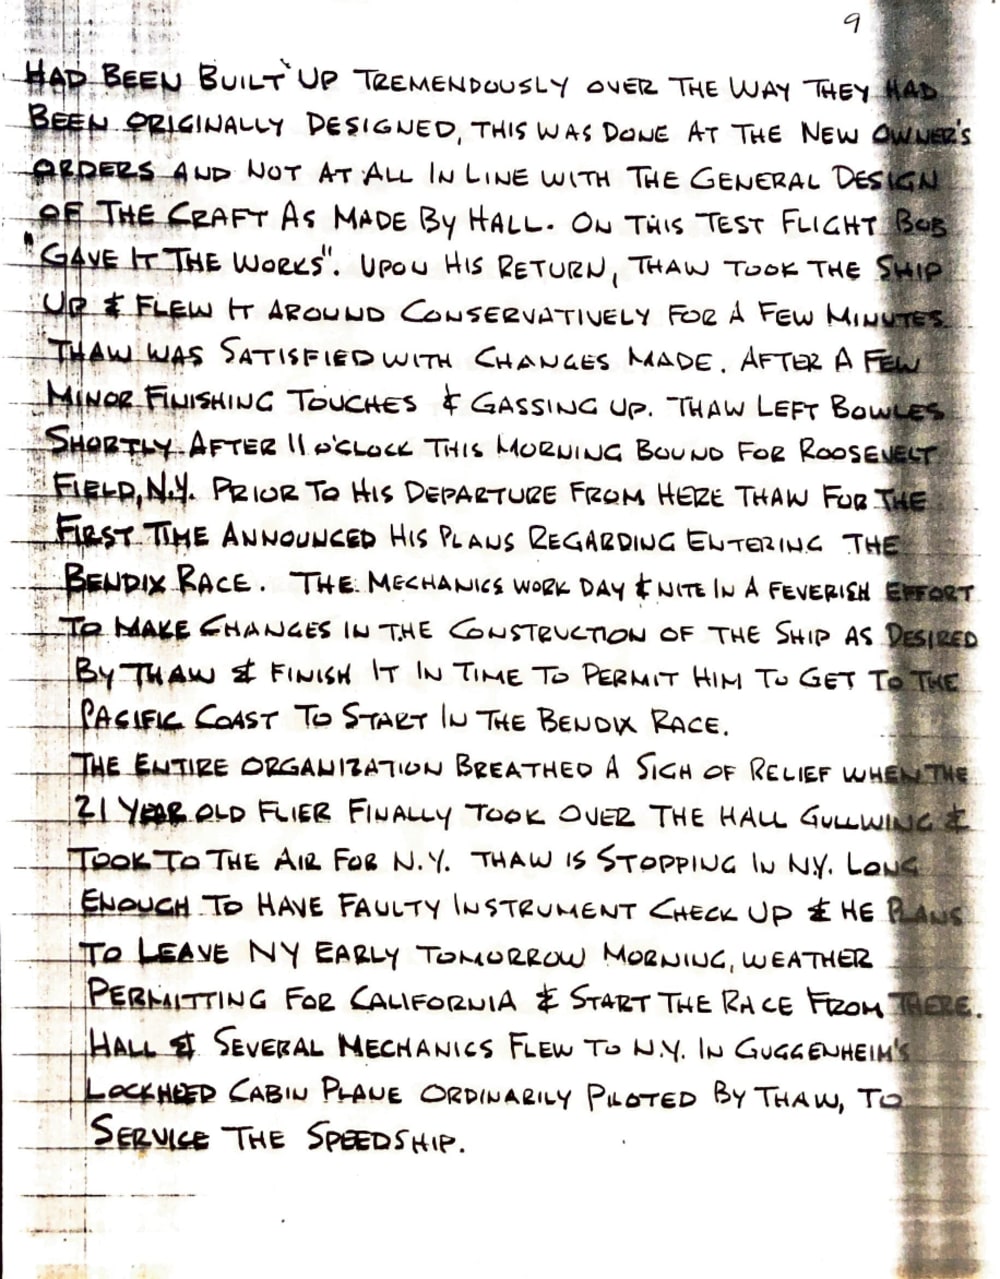 9
HAD BEEN BUILT UP TREMENDOUSLY OVER THE WAY THEY HAD
BEEN ORIGINALLY DESIGNED, THIS WAS DONE AT THE NEW OWNER'S
ORDERS AND NOT AT ALL IN LINE WITH THE GENERAL DESIGN
OF THE CRAFT AS MADE BY HALL. ON THIS TEST FLIGHT BOB
"GAVE IT THE WORKS". UPON HIS RETURN, THAW TOOK THE SHIP
UP & FLEW IT AROUND CONSERVATIVELY FOR A FEW MINUTES.
THAW WAS SATISFIED WITH CHANGES MADE. AFTER A FEW
MINOR FINISHING TOUCHES & GASSING UP. THAW LEFT BOWLES
SHORTLY AFTER 11 O'CLOCK THIS MORNING BOUND FOR ROOSEVELT
FIELD, N.Y. PRIOR TO HIS DEPARTURE FROM HERE THAW FOR THE
FIRST TIME ANNOUNCED HIS PLANS REGARDING ENTERING THE
BENDIX RACE. THE MECHANICS WORK DAY & NITE IN A FEVERISH EFFORT
TO MAKE CHANGES IN THE CONSTRUCTION OF THE SHIP AS DESIRED
BY THAW & FINISH IT IN TIME TO PERMIT HIM TO GET TO THE
PACIFIC COAST TO START IN THE BENDIX RACE.
THE ENTIRE ORGANIZATION BREATHED A SIGH OF RELIEF WHEN THE
21 YEAR OLD FLIER FINALLY TOOK OVER THE HALL GULLWING &
TOOK TO THE AIR FOR N.Y. THAW IS STOPPING IN N.Y. LONG
ENOUGH TO HAVE FAULTY INSTRUMENT CHECK UP & HE PLANS
TO LEAVE NY EARLY TOMORROW MORNING, WEATHER
PERMITTING FOR CALIFORNIA & START THE RACE FROM THERE.
HALL & SEVERAL MECHANICS FLEW TO N.Y. IN GUGGENHEIM'S
LOCKHEED CABIN PLANE ORDINARILY PILOTED BY THAW, TO
SERVICE THE SPEEDSHIP.